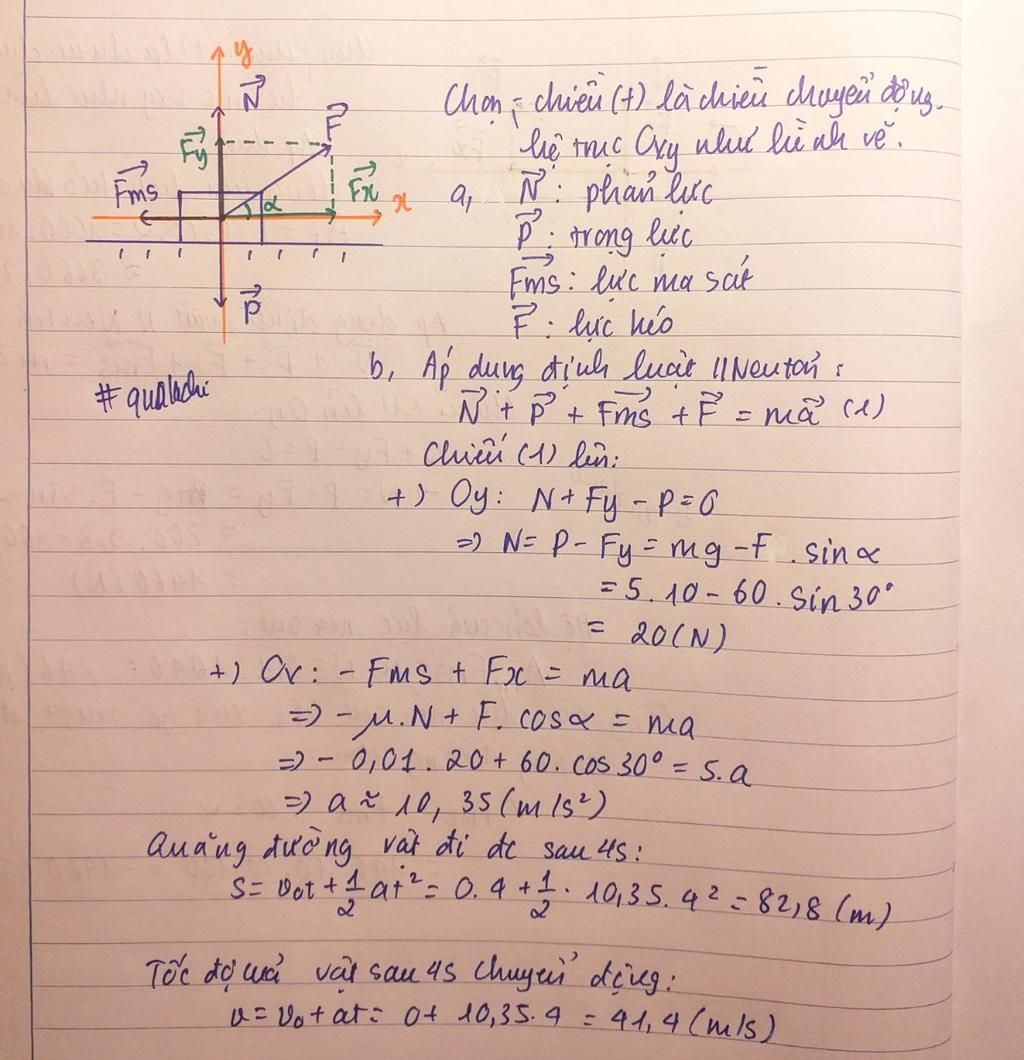 y
N
F
Fy
Fms
Fx
α
x
P
Chọn: chiều (+) là chiều chuyển động.
hệ trục Oxy như hình vẽ.
a, N : phản lực
P : trọng lực
Fms : lực ma sát
F : lực kéo
b, Áp dụng định luật II Neuton :
# qualachi
N + P + Fms + F = ma (1)
Chiếu (1) lên:
+) Oy: N + Fy - P = 0
=> N = P - Fy = mg - F . sin α
= 5.10 - 60. sin 30°
= 20 (N)
+) Ox: - Fms + Fx = ma
=> - μ.N + F. cos α = ma
=> - 0,01 . 20 + 60. cos 30° = 5.a
=> a ≈ 10, 35 (m/s²)
Quãng đường vật đi đc sau 4s:
S = v₀t + 1/2 at² = 0.4 + 1/2 . 10,35. 4² = 82,8 (m)
Tốc độ của vật sau 4s chuyển động:
v = v₀ + at = 0 + 10,35. 4 = 41,4 (m/s)